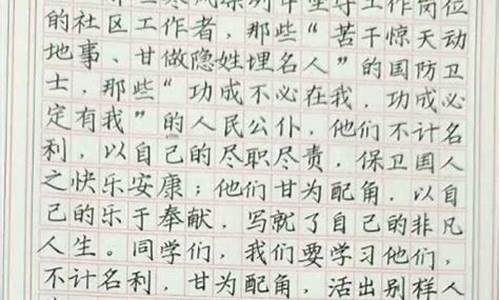 些寒风凛冽中坚守工作岗位
的社区工作者，那些“苦干惊天动
地事、甘做隐姓埋名人”的国防卫
士，那些“功成不必在我，功成必
定有我”的人民公仆，他们不计名
利，以自己的尽职尽责，保卫国人
之快乐安康；他们甘为配角，以自
己的乐于奉献，写就了自己的非凡
人生。同学们，我们要学习他们，
不计名利，甘为配角，活出别样人